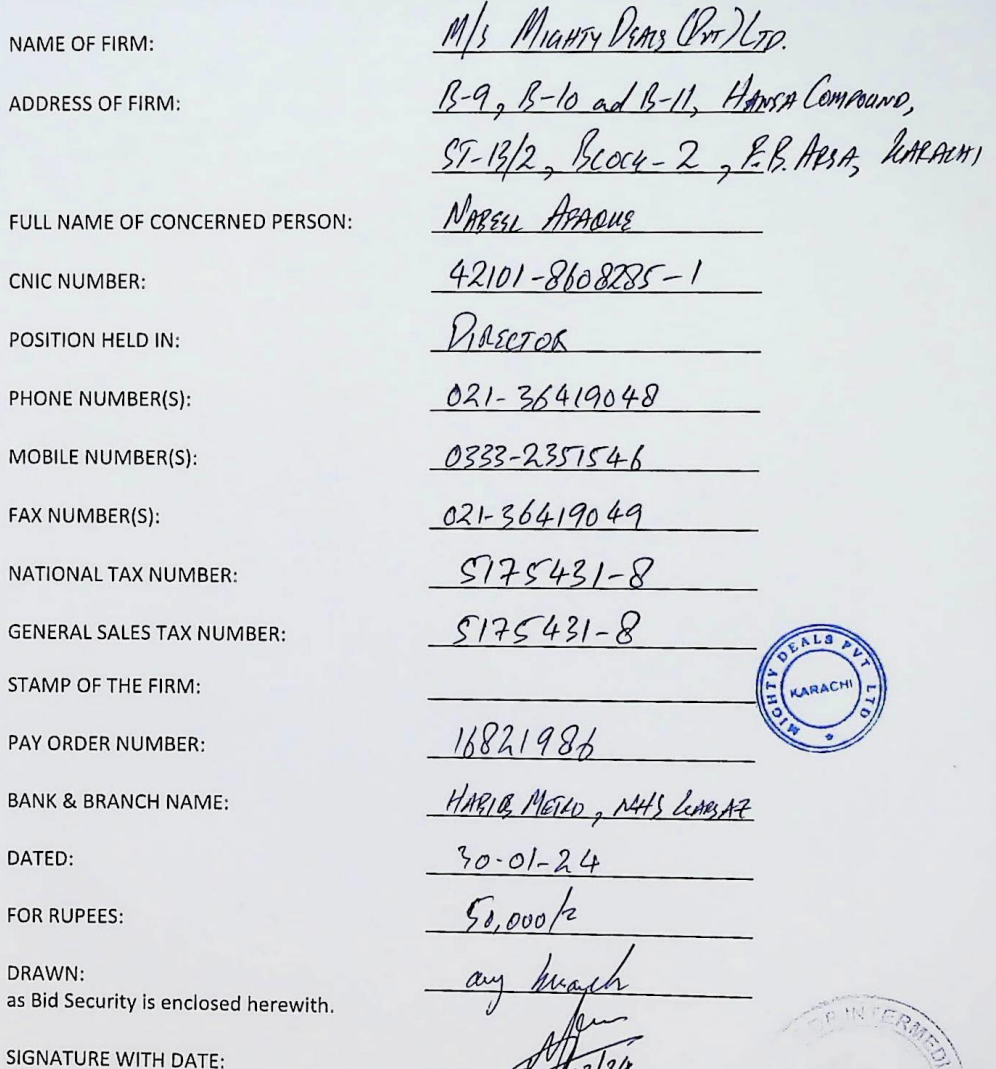 NAME OF FIRM: M/s MIGHTY DEALS (PVT) LTD.
ADDRESS OF FIRM: B-9, B-10 ad B-11, HANSA COMPOUND,
ST-13/2, BLOCK-2, F.B. AREA, KARACHI
FULL NAME OF CONCERNED PERSON: NABEEL
CNIC NUMBER: 42101-8608285-1
POSITION HELD IN: DIRECTOR
PHONE NUMBER(S): 021-36419048
MOBILE NUMBER(S): 0333-2351546
FAX NUMBER(S): 021-36419049
NATIONAL TAX NUMBER: 5175431-8
GENERAL SALES TAX NUMBER: 5175431-8
STAMP OF THE FIRM:
MIGHTY DEALS PVT LTD
KARACHI
PAY ORDER NUMBER: 16821986
BANK & BRANCH NAME: HABIB METRO, KARSAZ
DATED: 30-01-24
FOR RUPEES: 50,000/=
DRAWN: any branch
as Bid Security is enclosed herewith.
SIGNATURE WITH DATE: